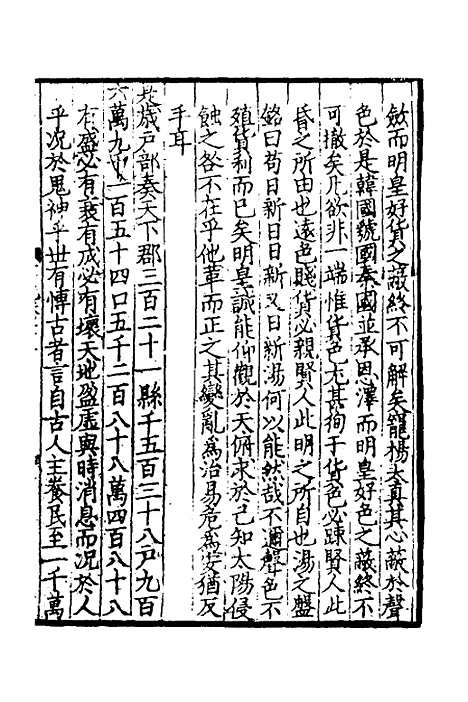 斂而明皇好貨之蔽終不可解矣寵楊太真其心蔽於聲
色於是韓國虢國秦國並承恩澤而明皇好色之蔽終不
可撤矣凡欲非一端惟貨色尤甚徇于貨色必踈賢人此
昏之所由也遠色賤貨必親賢人此明之所自也湯之盤
銘曰苟日新日日新又日新湯何以能然哉不邇聲色不
殖貨利而已矣明皇誠能仰觀於天俯求於己知太陽侵
蝕之咎不在乎他革而正之其變亂為治易危為安猶反
手耳
是歲戶部奏天下郡三百二十一縣千五百三十八戶九百
六萬九千一百五十四口五千二百八十八萬四百八十八
有盛必有衰有成必有壞天地盈虛與時消息而況於人
乎況於鬼神乎世有博古者言自古人主養民至一千萬